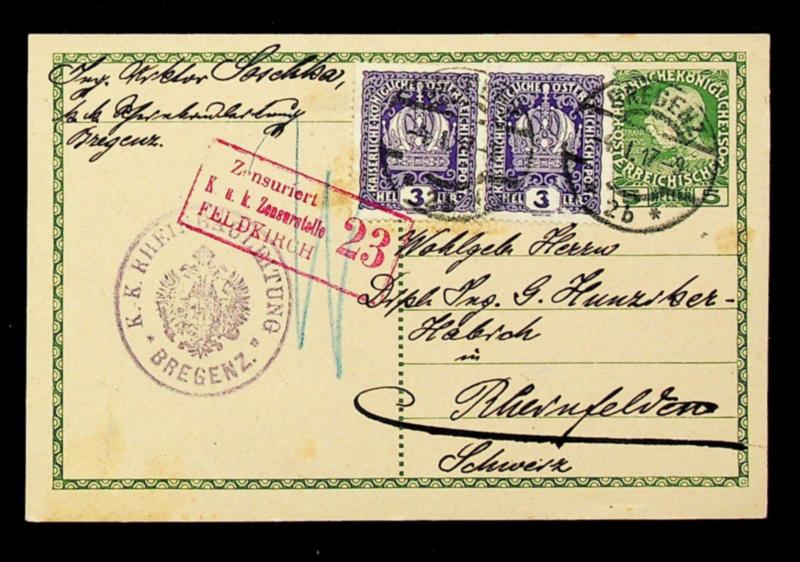 Ing. Viktor Soschka,
k.k. Rheinbauleitung
Bregenz.
KAISERLICHE KÖNIGLICHE ÖSTERREICHISCHE POST
3 3
HELLER
KAISERLICHE KÖNIGLICHE ÖSTERREICHISCHE POST
3 3
HELLER
5
HELLER
BREGENZ
2b *
Zensuriert
K. u. k. Zensurstelle
FELDKIRCH
23
K. K. RHEINBAULEITUNG
* BREGENZ. *
Wohlgeb. Herrn
Dipl. Ing. G. Hunziker-
Habich
in
Rheinfelden
Schweiz